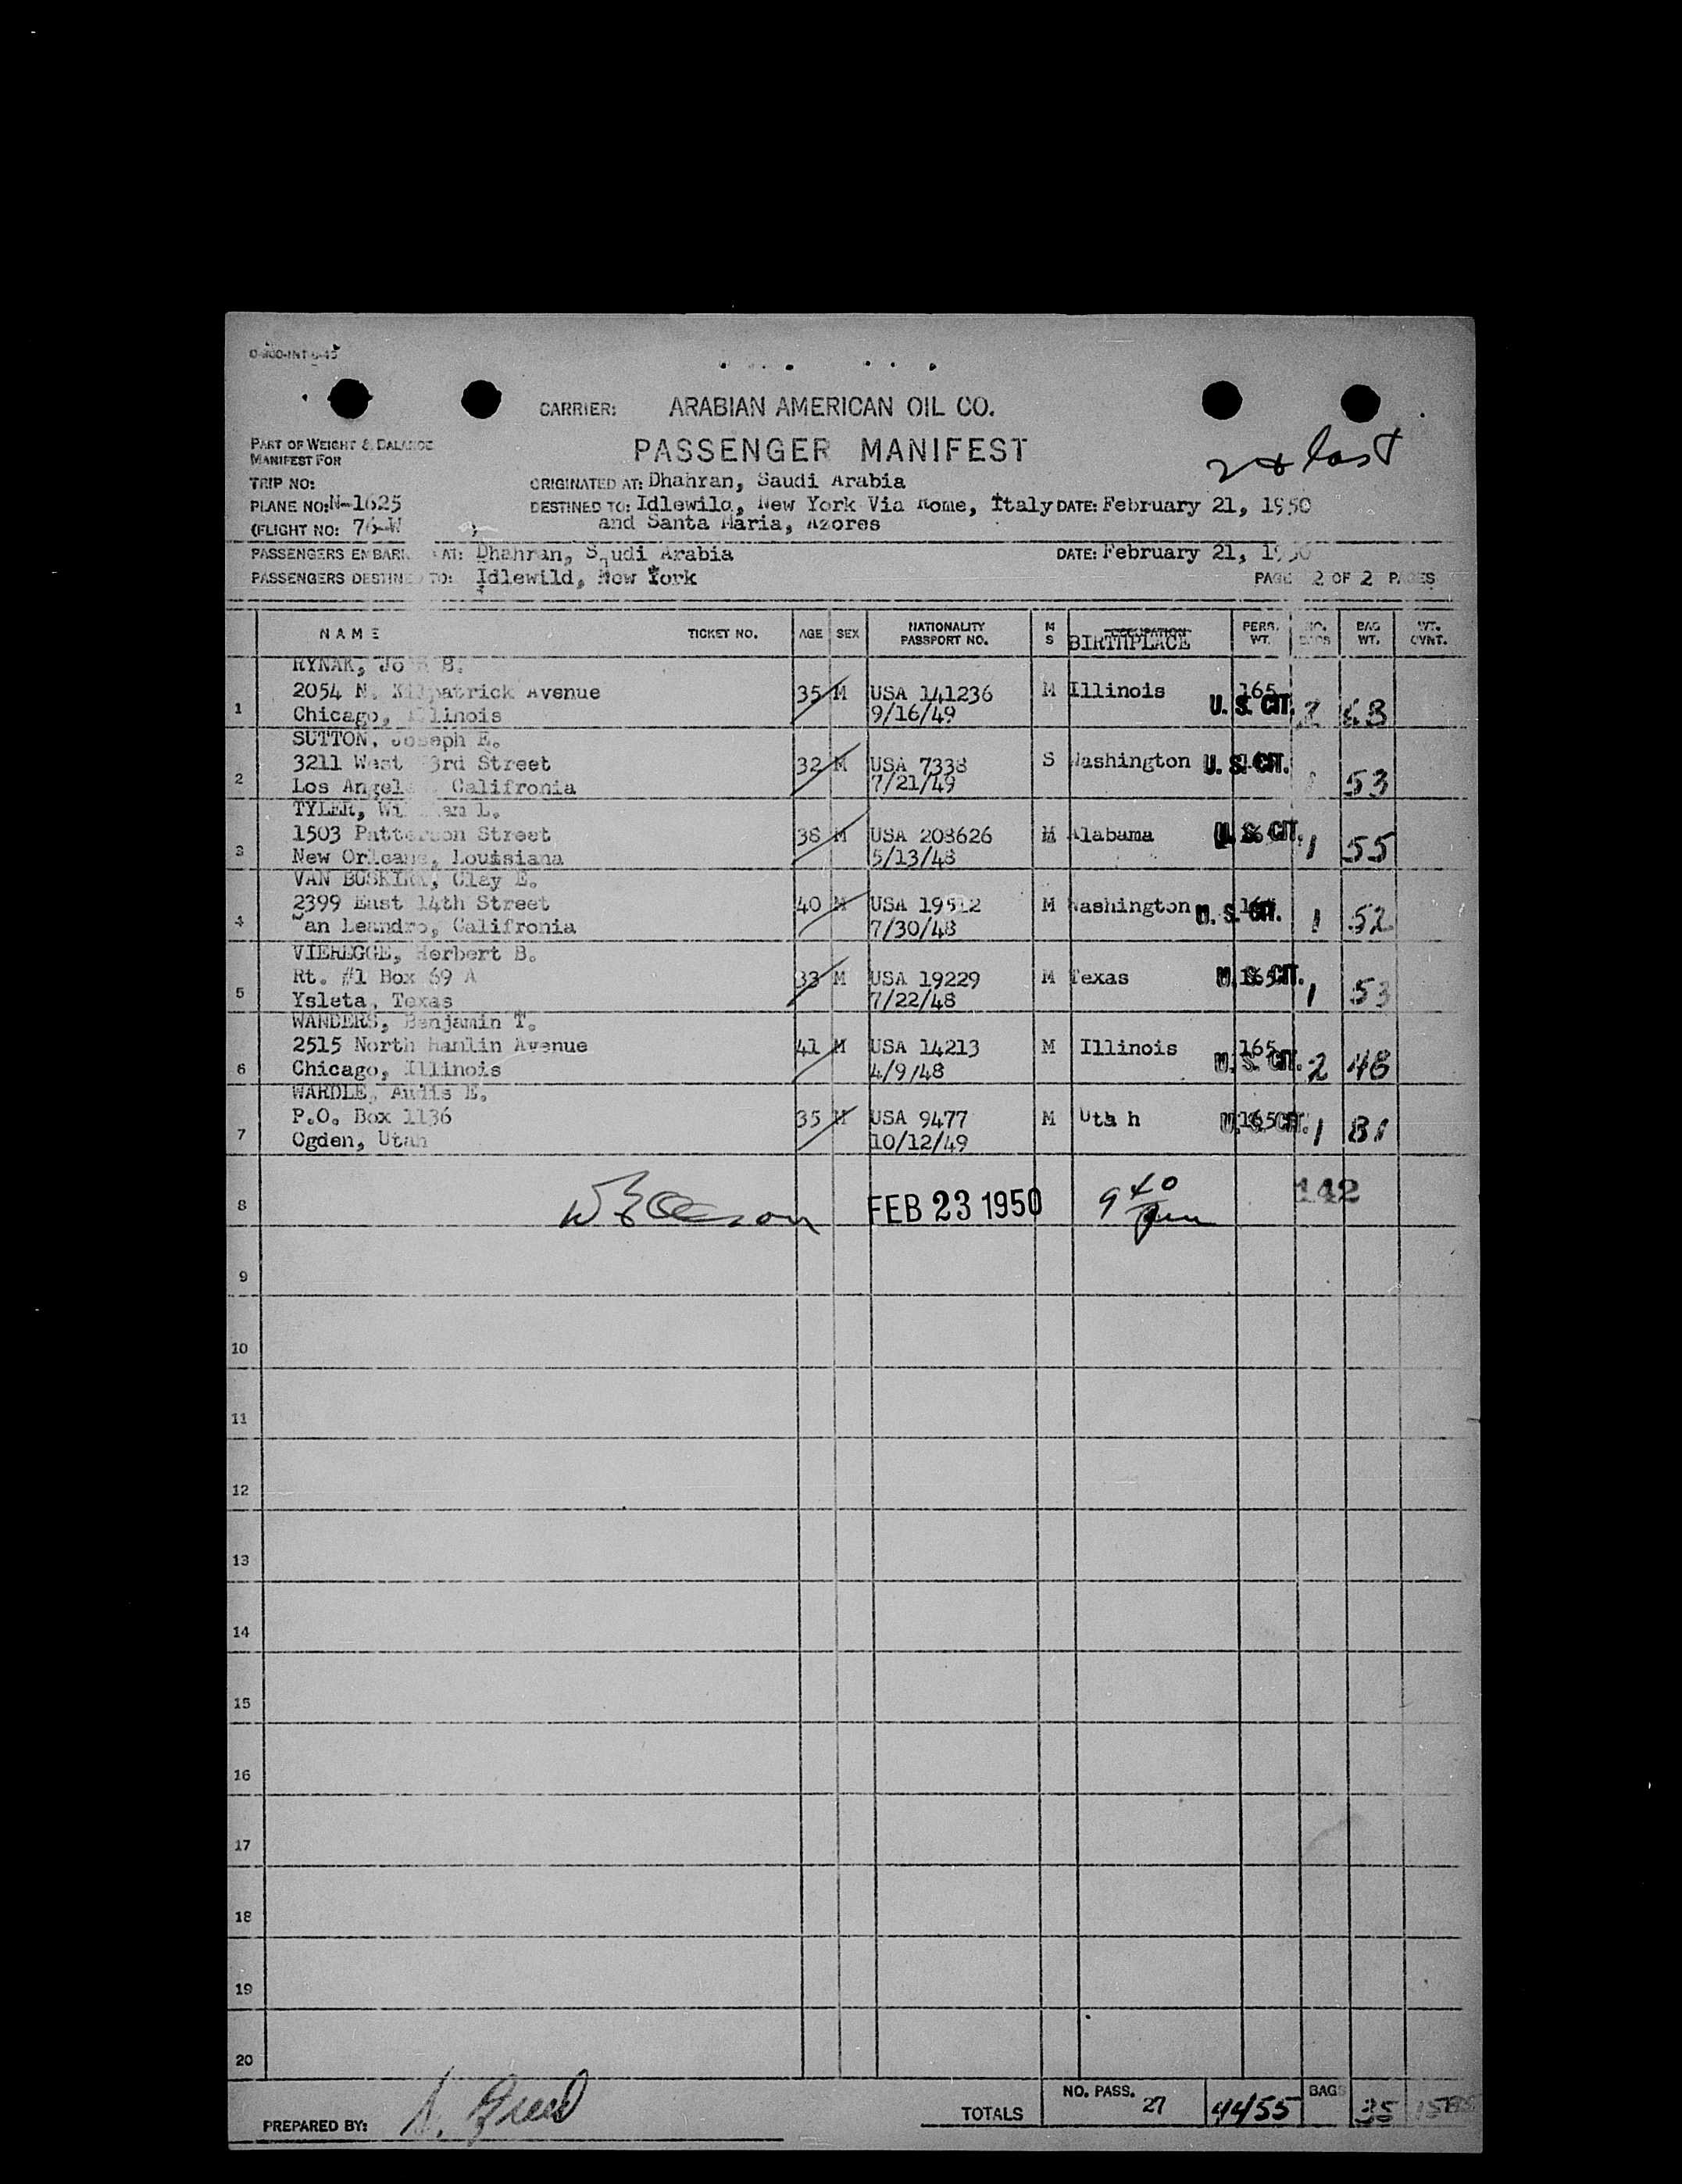 CARRIER: ARABIAN AMERICAN OIL CO.
PART OF WEIGHT & BALANCE
MANIFEST FOR
PASSENGER MANIFEST
2 & last
TRIP NO:
ORIGINATED AT: Dhahran, Saudi Arabia
PLANE NO: N-1625
DESTINED TO: Idlewild, New York Via Rome, Italy DATE: February 21, 1950
and Santa Maria, Azores
(FLIGHT NO: 76-W )
PASSENGERS EMBARK AT: Dhahran, Saudi Arabia DATE: February 21, 1950
PASSENGERS DESTINED TO: Idlewild, New York PAGE 2 OF 2 PAGES
NAME TICKET NO. AGE SEX NATIONALITY PASSPORT NO. M S OCCUPATION BIRTHPLACE PERS. WT. NO. BAGS BAG WT. WT. OVNT.
RYNAK, B.
2054 N. Kilpatrick Avenue 35 M USA 141236 M Illinois 165
1 Chicago, Illinois 9/16/49 U. S. CIT. 63
SUTTON, Joseph E.
3211 West 3rd Street 32 M USA 7338 S Washington U. S. CIT.
2 Los Angel Califronia 7/21/49 1 53
TYLER, L.
1503 Patterson Street 38 M USA 208626 M Alabama U. S. CIT.
3 New Orleans, Louisiana 5/13/48 1 55
VAN BUSKIRK, Clay E.
2399 East 14th Street 40 M USA 19512 M Washington U. S. CIT.
4 San Leandro, Califronia 7/30/48 1 52
VIEREGGE, Herbert B.
Rt. #1 Box 69 A 33 M USA 19229 M Texas 165 U. S. CIT.
5 Ysleta, Texas 7/22/48 1 53
WANDERS, Benjamin T.
2515 North Hamlin Avenue 41 M USA 14213 M Illinois 165
6 Chicago, Illinois 4/9/48 U. S. CIT. 2 48
WARDLE, Audis E.
P.O. Box 1136 35 M USA 9477 M Utah 165 U. S. CIT.
7 Ogden, Utah 10/12/49 1 81
8 FEB 23 1950 9 40 142
9
10
11
12
13
14
15
16
17
18
19
20
PREPARED BY: TOTALS NO. PASS. 27 4455 BAGS 35